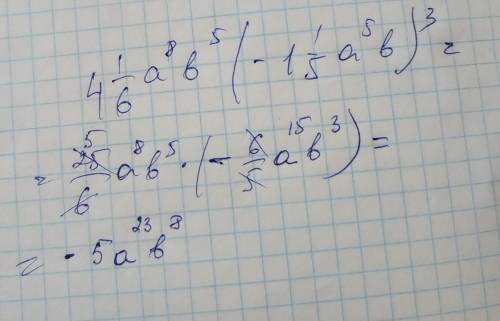 4 1/6 a⁸b⁵ (- 1 1/5 a⁵b)³ =
= 25/6 5 a⁸b⁵ · (- 6/5 a¹⁵b³) =
= - 5a²³b⁸